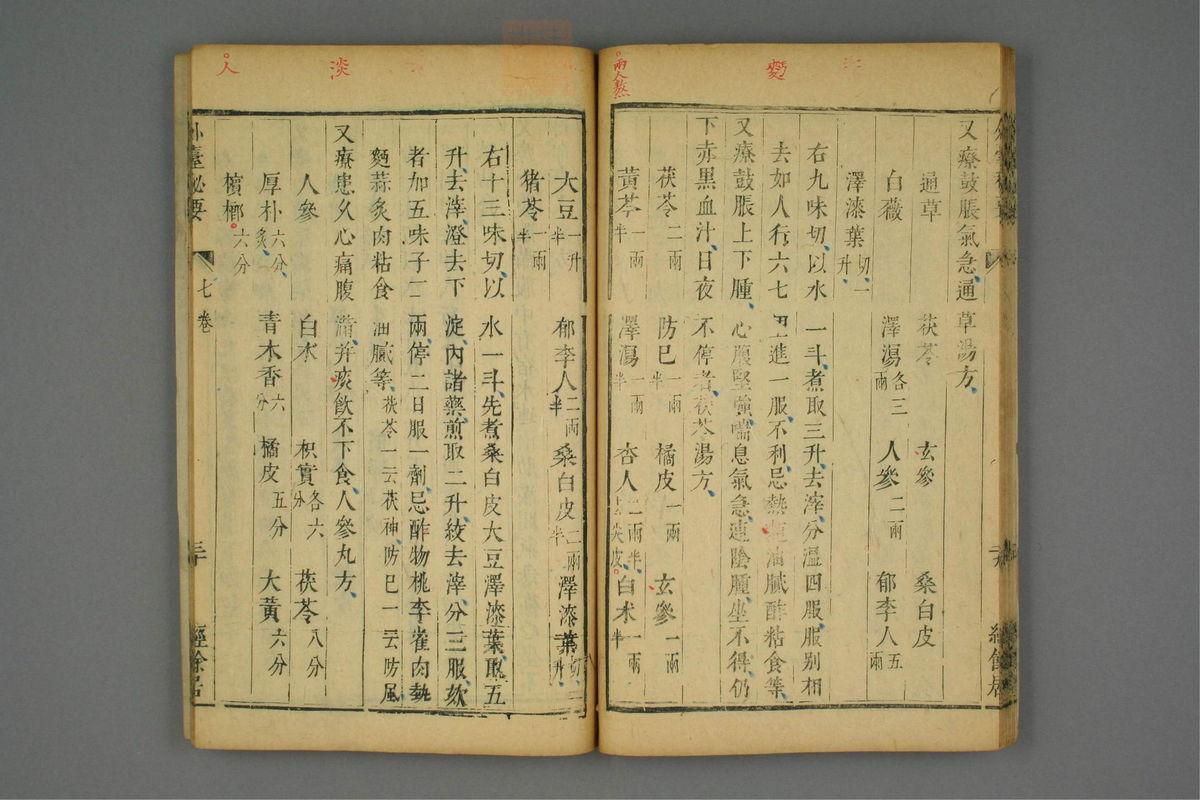 又療鼓脹氣急通草湯方
通草 茯苓 玄參 桑白皮
白薇 澤瀉各三兩 人參二兩 郁李人五兩
澤漆葉切一升
右九味切以水一斗煮取三升去滓分溫四服服别相
去如人行六七里進一服不利忌熱麪油膩酢粘食等
又療鼓脹上下腫心腹堅強喘息氣急連陰腫坐不得仍
下赤黑血汁日夜不停者茯苓湯方
茯苓二兩 防巳一兩半 橘皮一兩 玄參一兩
黃芩一兩半 澤瀉一兩半 杏人二兩半去尖皮 白朮一兩半
大豆一升半 郁李人二兩半 桑白皮二兩半 澤漆葉切一升
猪苓一兩半
右十三味切以水一斗先煮桑白皮大豆澤漆葉取五
升去滓澄去下淀内諸藥煎取二升絞去滓分三服欬
者加五味子二兩停二日服一劑忌酢物桃李雀肉熱
麪蒜炙肉粘食油膩等茯苓一云茯神防巳一云防風
又療患久心痛腹滿并痰飲不下食人參丸方
人參 白朮 枳實各六分 茯苓八分
厚朴六分炙 青木香六分 橘皮五分 大黃六分
檳榔六分
外臺秘要 七卷 經餘居
兩人熬
淡
人